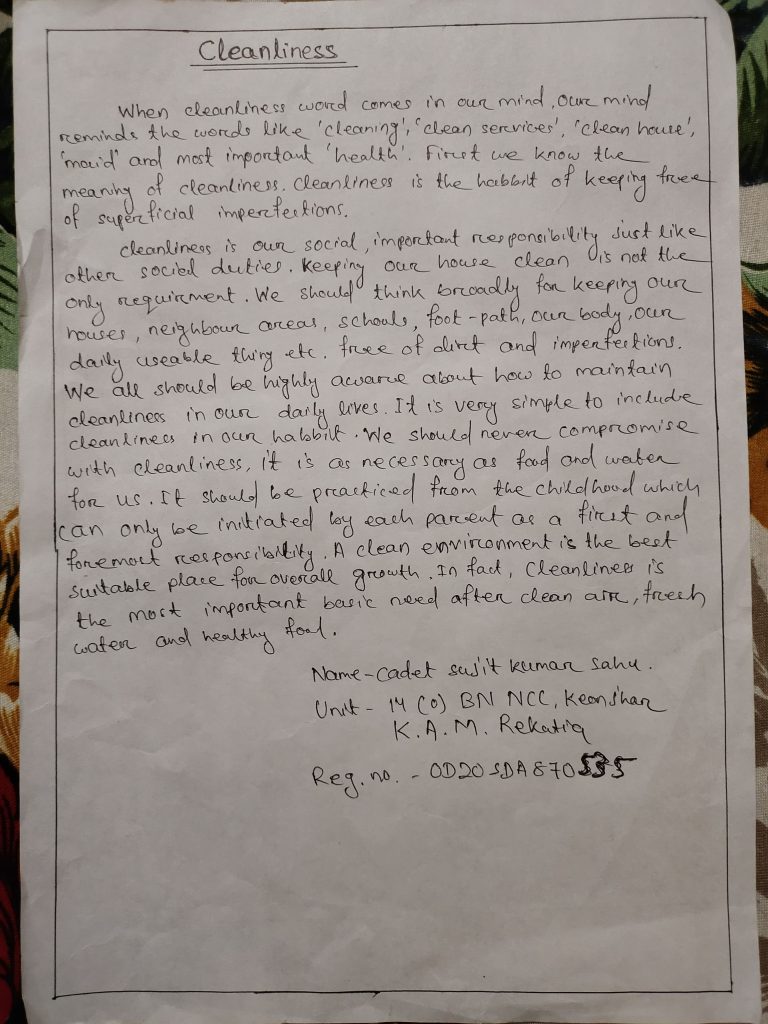 Cleanliness
When cleanliness word comes in our mind, our mind
reminds the words like 'cleaning', 'clean services', 'clean house',
'maid' and most important 'health'. First we know the
meaning of cleanliness. Cleanliness is the habbit of keeping free
of superficial imperfections.
cleanliness is our social, important responsibility just like
other social duties. Keeping our house clean is not the
only requirment. We should think broadly for keeping our
houses, neighbour areas, schools, foot-path, our body, our
daily useable thing etc. free of dirt and imperfections.
We all should be highly aware about how to maintain
cleanliness in our daily lives. It is very simple to include
cleanliness in our habbit. We should never compromise
with cleanliness, it is as necessary as food and water
for us. It should be practiced from the childhood which
can only be initiated by each parent as a first and
foremost responsibility. A clean environment is the best
suitable place for overall growth. In fact, Cleanliness is
the most important basic need after clean air, fresh
water and healthy food.
Name-Cadet Sujit Kumar Sahu.
Unit - 14 (O) BN NCC, Keonjhar
K.A.M. Rekatia
Reg. no. - OD20SDA870535